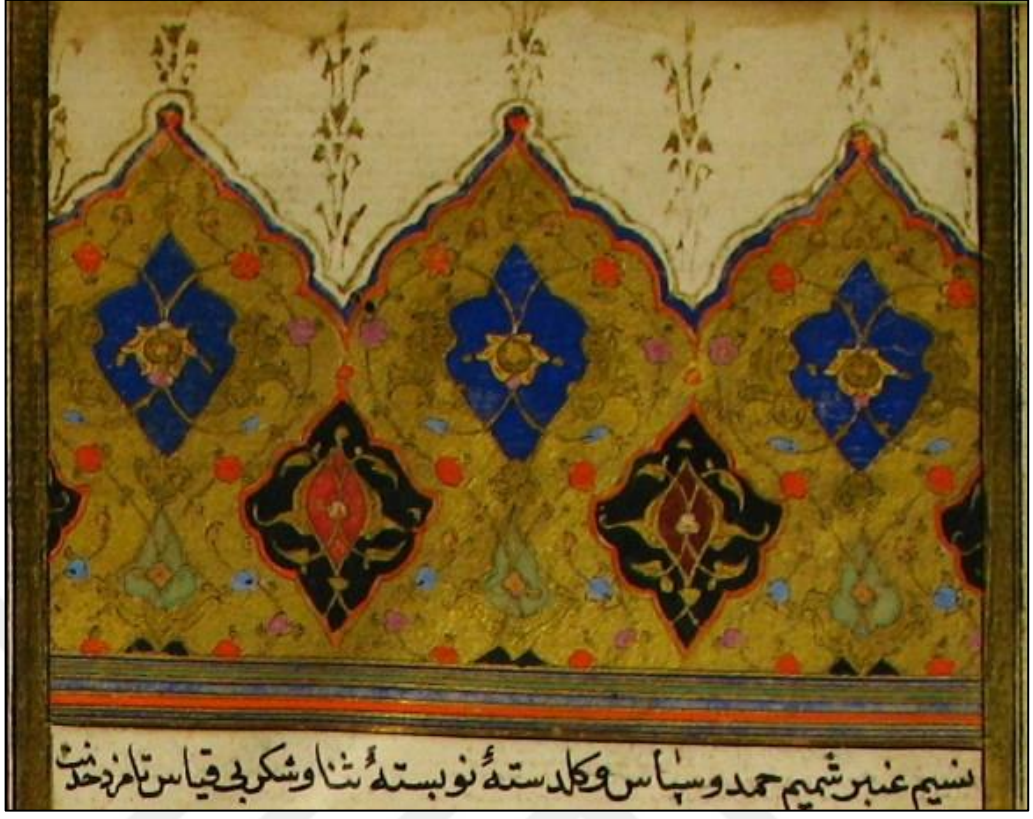 نسیم عنبر شمیم حمد و سپاس و کلدستهٔ نوبستهٔ ثنا و شکر بی قیاس نامزد